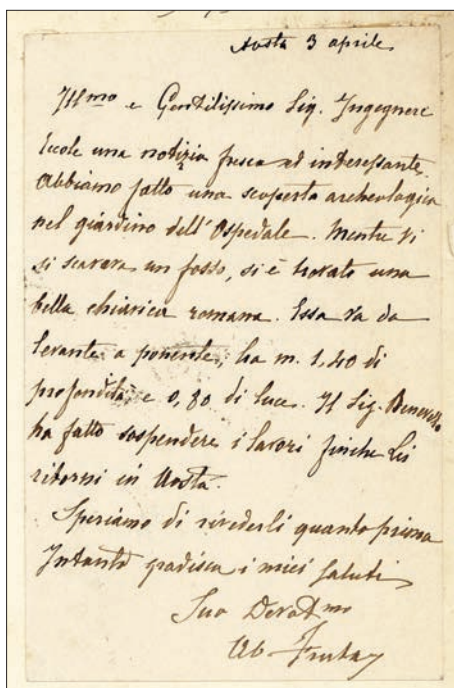 Aosta 3 aprile
Ill.mo e Gentilissimo Sig. Ingegnere
Eccole una notizia fresca ed interessante.
Abbiamo fatto una scoperta archeologica
nel giardino dell'Ospedale. Mentre vi
si scavava un fosso, si è trovato una
bella chiavica romana. Essa va da
levante a ponente, ha m. 1,40 di
profondità, e 0,80 di luce. Il Sig.
ha fatto sospendere i lavori finche Lei
ritorni in Aosta.
Speriamo di rivederli quanto prima
Intanto gradisca i miei saluti
Suo Devotmo
Ab